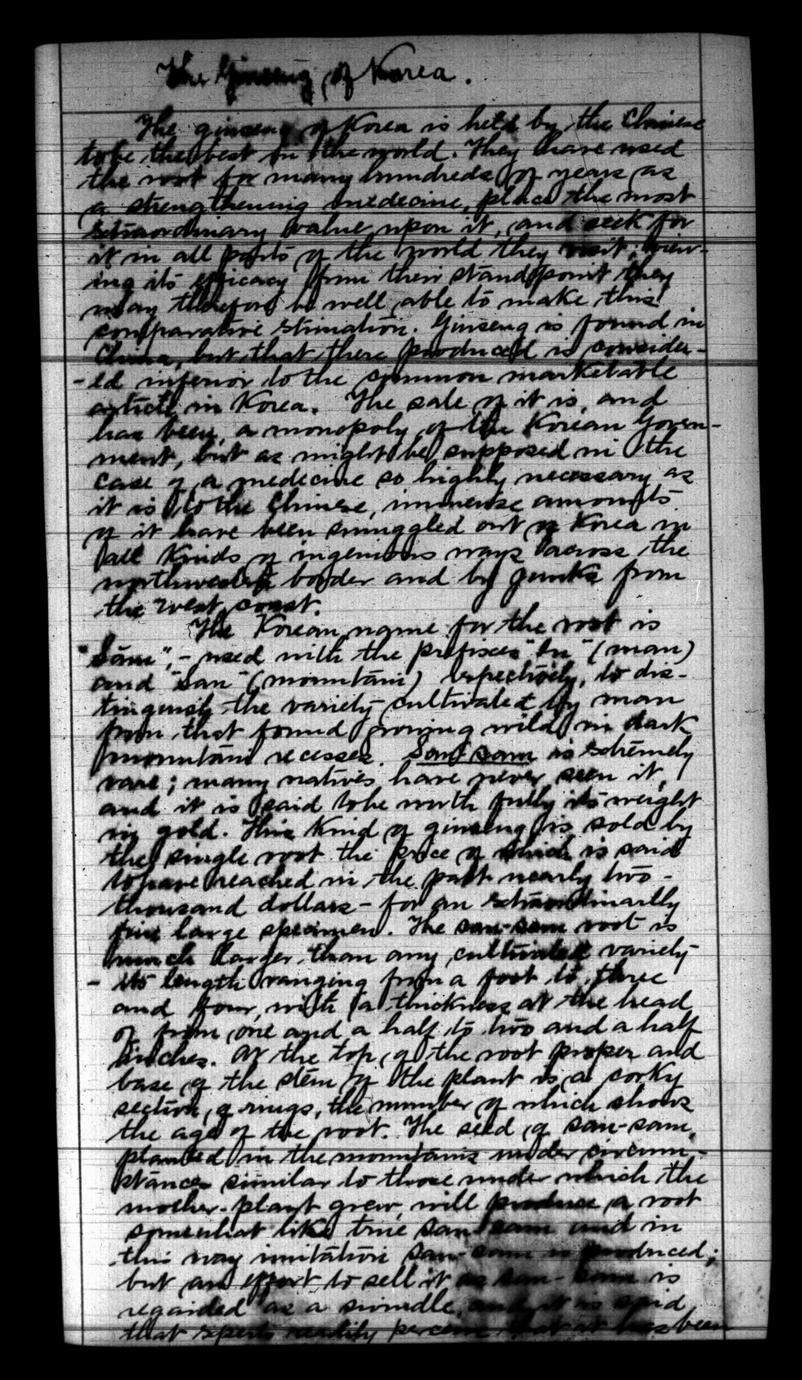 The Ginseng of Korea.
The ginseng of Korea is held by the Chinese
to be the best in the world. They have used
the root for many hundreds of years as
a strengthening medecine, place the most
extraordinary value upon it, and seek for
it in all parts of the world they visit; view-
ing its efficacy from their standpoint they
may therefore be well able to make this
comparative estimation. Ginseng is found in
China, but that there produced is consider-
-ed inferior to the common marketable
article in Korea. The sale of it is, and
has been, a monopoly of the Korean Govern-
ment, but as might be supposed in the
case of a medecine so highly necessary as
it is to the Chinese, immense amounts
of it have been smuggled out of Korea in
all kinds of ingenious ways across the
northwestern border and by junks from
the west coast.
The Korean name for the root is
"Sam", - used with the prefixes "In" (man)
and "San" (mountain) respectively, to dis-
tinguish the variety cultivated by man
from that found growing wild in dark
mountain recesses. San sam is extremely
rare; many natives have never seen it,
and it is said to be worth fully its weight
in gold. This kind of ginseng is sold by
the single root the price of which is said
to have reached in the past nearly two-
thousand dollars - for an extraordinarily
fine large specimen. The san-sam root is
much larger than any cultivated variety
- its length ranging from a foot to three
and four, with a thickness at the head
of from one and a half to two and a half
inches. At the top of the root proper and
base of the stem of the plant is a corky
section of rings, the number of which shows
the age of the root. The seed of san-sam,
planted in the mountains under circum-
stances similar to those under which the
mother-plant grew, will produce a root
somewhat like true san-sam and in
this way imitation san-sam is produced;
but an effort to sell it as san-sam is
regarded as a swindle, and it is said
that experts readily perceive that it has been